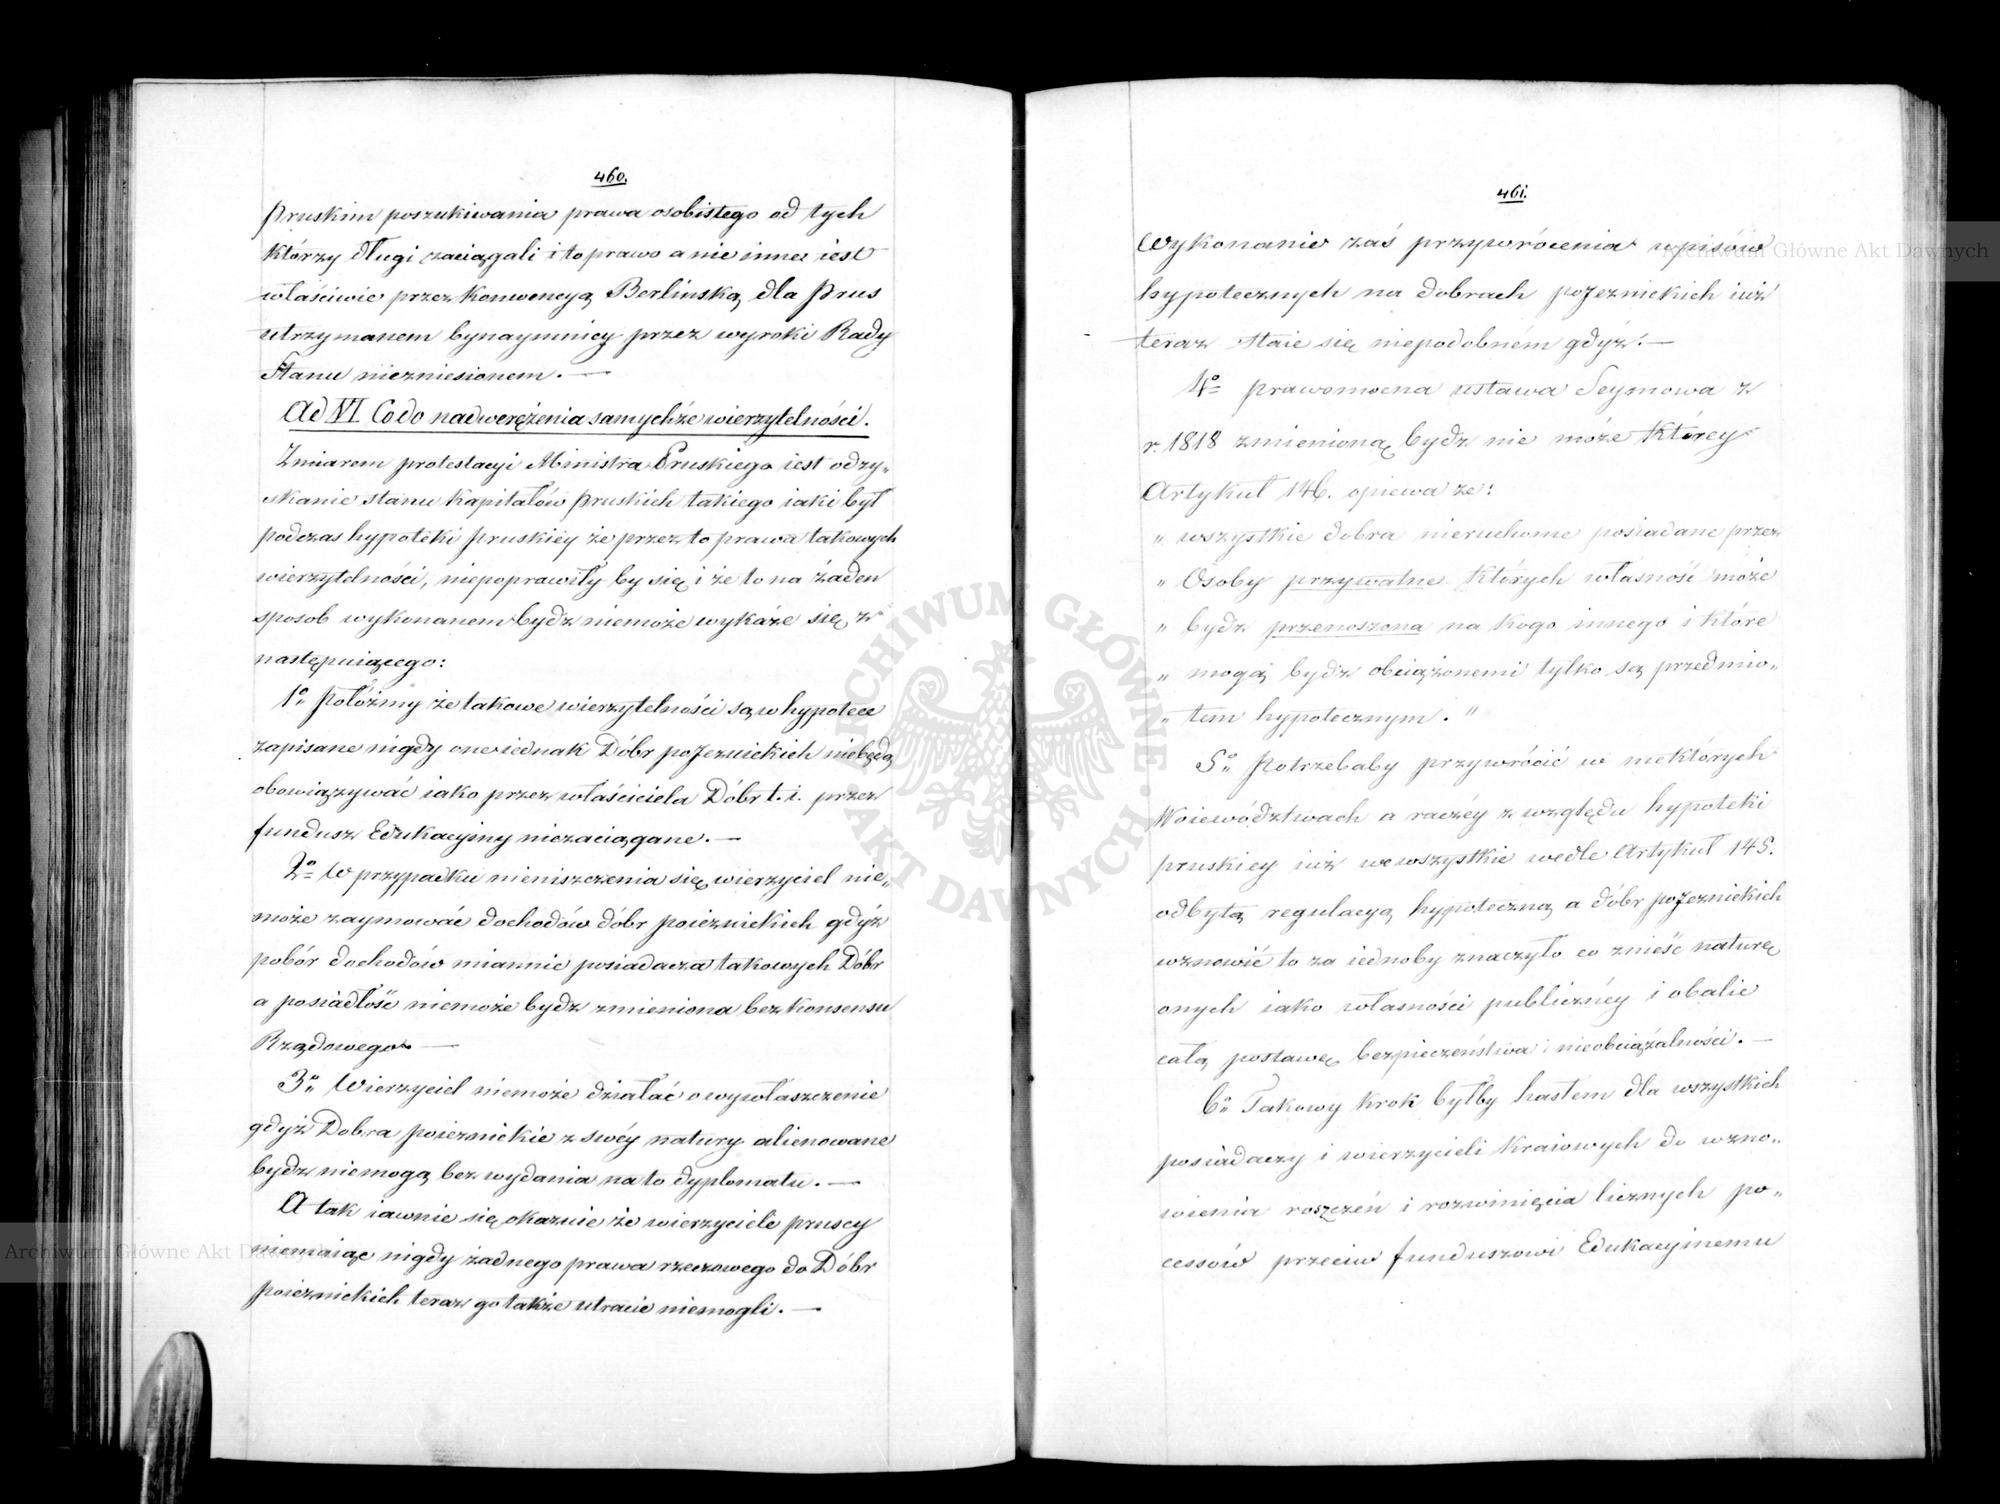 460.
Pruskim poszukiwania prawa osobistego od tych
którzy długi zaciągali i to prawo a nie inne iest
właściwie przez Konwencyą Berlinską dla Prus
utrzymanem bynaymniey przez wyroki Rady
Stanu niezniesionem. —
Ad VI Co do nadwerężenia samychże wierzytelności.
Zmiarem protestacyi Ministra Pruskiego iest odzy„
skanie stanu Kapitałów Pruskich takiego iaki był
podczas hypoteki Pruskiey że przez to prawa takowych
wierzytelności, niepoprawiły by się i że to na żaden
sposob wykonanem bydz niemoże wykaże się z
następuiącego:
1o Połóżmy że takowe wierzytelności są w hypotece
zapisane nigdy one iednak Dóbr poJeznickich niebędą
obowiązywać iako przez właściciela Dóbr t. i. przez
fundusz Edukacyiny niezaciągane. —
2o W przypadku nieniszczenia się wierzyciel nie„
może zaymować dochodów dóbr poiezuickich gdyż
pobór dochodów mianuie posiadacza takowych Dóbr
a posiadłość niemoże bydz zmieniona bez konsensu
Rządowego —
3o Wierzyciel niemoże działać o wywłaszczenie
gdyż Dobra poiezuickie z swéy natury alienowane
bydz niemogą bez wydania na to dyplomatu. —
A tak iawnie się okazuie że wierzyciele pruscy
niemaiąc nigdy żadnego prawa rzeczowego do Dóbr
poiezuickich teraz go także utracić niemogli. —
461.
Wykonanie zaś przywrócenia wpisów
hypotecznych na dobrach poJezuickich iuż
teraz staie się niepodobném gdyż. —
4o prawomocna ustawa Seymowa z
r. 1818 zmienioną bydz nie może Którey
Artykuł 146. opiewa że:
„ wszystkie dobra nieruchome posiadane przez
„ Osoby przywatne których własność może
„ bydz przenoszona na kogo innego i które
„ mogą bydz obciążonemi tylko są przedmio„
„ tem hypotecznym. "
5o Potrzebaby przywrócić w niektórych
Woiewództwach a raczéy z względu hypoteki
pruskiey iuż we wszystkie wedle Artykuł 145.
odbytą regulacyą hypoteczną a dóbr poJezuickich
wznowić to za iednoby znaczyło co znieść naturę
onych iako własności publicznéy i obalić
całą postawę bezpieczeństwa i nieobciążalności. —
6o Takowy krok byłby hasłem dla wszystkich
posiadaczy i wierzycieli Kraiowych do wzno„
wienia roszczeń i rozwinięcia licznych po„
cessów przeciw funduszowi Edukacyinemu
Archiwum Główne Akt Dawnych
Archiwum Główne Akt Dawnych
ARCHIWUM GŁÓWNE AKT DAWNYCH